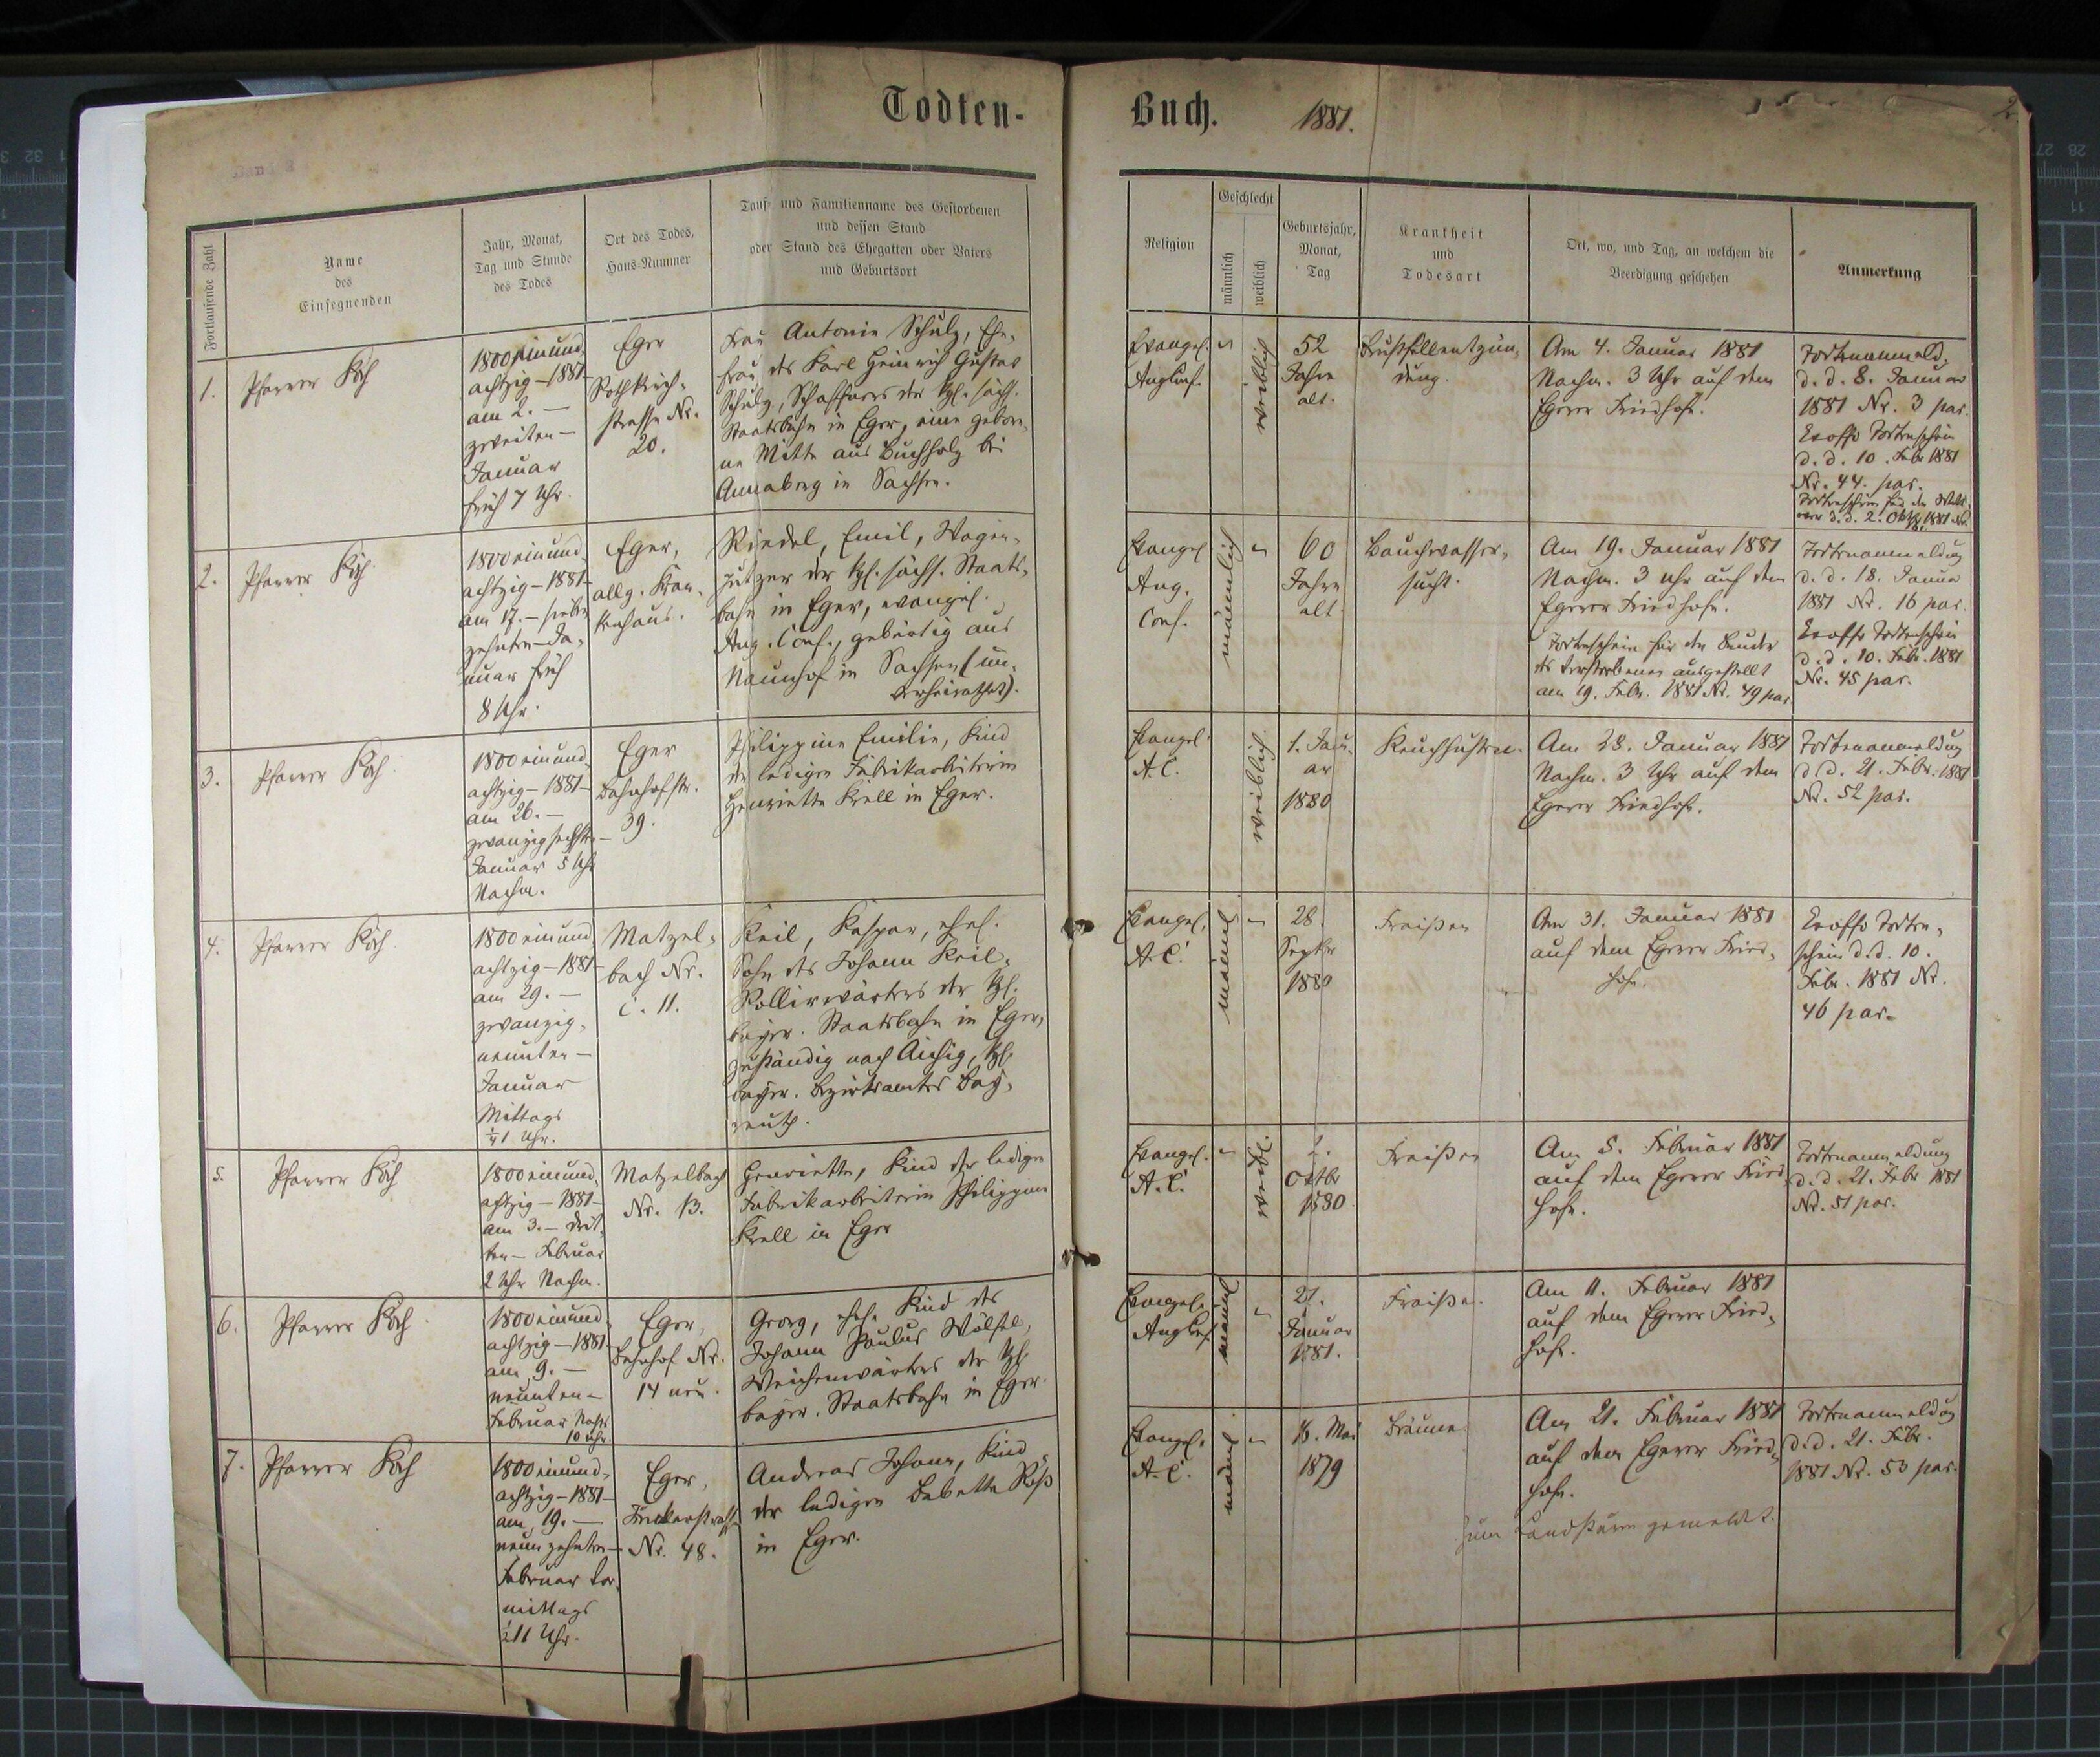 Todten-
Buch. 1881.
2
Fortlaufende Zahl
Name
des
Einsegnenden
Jahr, Monat,
Tag und Stunde
des Todes
Ort des Todes,
Haus-Nummer
Tauf- und Familienname des Gestorbenen
und dessen Stand
oder Stand des Ehegatten oder Vaters
und Geburtsort
Religion
Geschlecht
männlich
weiblich
Geburtsjahr,
Monat,
Tag
Krankheit
und
Todesart
Ort, wo, und Tag, an welchem die
Beerdigung geschehen
Anmerkung
1.
Pfarrer Koch
1800 einund
achtzig - 1881
am 2. -
zweiten -
Januar
früh 7 Uhr.
Eger
Rothkirch-
strasse Nr.
20.
Frau Antonie Schulz, Ehe-
frau des Karl Heinrich Gustav
Schulz, Schaffners der kgl. sächs.
Staatsbahn in Eger, eine gebore-
ne Mitte aus Buchholz bei
Annaberg in Sachsen.
Evangel.
Augs Conf.
weiblich
52
Jahre
alt.
Brustfellentzün-
dung.
Am 4. Januar 1881
Nachm. 3 Uhr auf dem
Egerer Friedhofe.
Todtenanmeld.
d. d. 8. Januar
1881 Nr. 3 par.
Exoffo Todtenschein
d. d. 10. Febr 1881
Nr. 44. par.
2.
Pfarrer Koch
1800 einund
achtzig - 1881
am 17. - sieben
zehnten - Ja-
nuar früh
8 Uhr.
Eger,
allg. Kran-
kenhaus.
Riedel, Emil, Wagen-
putzer der kgl. sächs. Staats-
bahn in Eger, evangel.
Aug. Conf., gebürtig aus
Naunhof in Sachsen (un-
verheirathet).
Evangel
Aug.
Conf.
männlich
60
Jahre
alt
Bauchwasser-
sucht.
Am 19. Januar 1881
Nachm. 3 Uhr auf dem
Egerer Friedhofe.
Todtenschein für den Bruder
des Verstorbenen ausgestellt
am 19. Febr. 1881 Nr. 49 par.
Todtenanmeldung
d. d. 18. Januar
1881 Nr. 16 par.
Exoffo Todtenschein
d. d. 10. Febr. 1881
Nr. 45 par.
3.
Pfarrer Koch.
1800 einund
achtzig - 1881
am 26. -
zwanzigsechsten -
Januar 5 Uhr
Nachm.
Eger
Bahnhofstr.
39.
Philippine Emilie, Kind
der ledigen Fabrikarbeiterin
Henriette Krell in Eger.
Evangel.
A. C.
weiblich
1. Janu-
ar
1880
Keuchhusten.
Am 28. Januar 1881
Nachm. 3 Uhr auf dem
Egerer Friedhofe.
Todtenanmeldung
d. d. 21. Febr. 1881
Nr. 52 par.
4.
Pfarrer Koch.
1800 einund
achtzig - 1881
am 29. -
zwanzig-
neunten -
Januar
Mittags
Matzel-
bach Nr.
C. 11.
Keil, Kaspar, ehel.
Sohn des Johann Keil,
der kgl.
bayer. Staatsbahn in Eger,
zuständig nach Aichig, kgl.
bayer. Bezirksamtes Bay-
reuth.
Evangel.
A. C.
männl
28.
Septbr
1880
Fraisen
Am 31. Januar 1881
auf dem Egerer Fried-
hofe.
Exoffo Todten-
schein d. d. 10.
Febr. 1881 Nr.
46 par.
5.
Pfarrer Koch
1800 einund
achtzig - 1881
am 3. - drit-
ten - Februar
2 Uhr Nachm.
Matzelbach
Nr. 13.
Henriette, Kind der ledigen
Fabrikarbeiterin Philippine
Krell in Eger
Evangel.
A. C.
weibl.
Octbr
1880
Fraisen
Am 5. Februar 1881
auf dem Egerer Fried
hofe.
Todtenanmeldung
d. d. 21. Febr 1881
Nr. 51 par.
6.
Pfarrer Koch
1800 einund
achtzig - 1881
am 9. -
neunten -
Februar Nachts
10 Uhr.
Eger,
Bahnhof Nr.
14 neu.
Georg, ehel. Kind des
Johann Paulus Wölfel,
Weichenwärters der kgl.
bayer. Staatsbahn in Eger.
Evangel.
Augs Conf
männl
21.
Januar
1881.
Fraisen.
Am 11. Februar 1881
auf dem Egerer Fried-
hofe.
7.
Pfarrer Koch
1800 einund-
achtzig - 1881 -
am 19. -
neunzehnten -
Februar Vor-
mittags
Eger,
Nr. 48.
Andreas Johann, Kind
der ledigen Babette Roß
in Eger.
Evangel.
A. C.
männl
16. Mai
1879
Bräune
Am 21. Februar 1881
auf dem Egerer Fried-
hofe.
zum Landsturm gemeldet.
Todtenanmeldung
d. d. 21. Febr.
1881 Nr. 53 par.